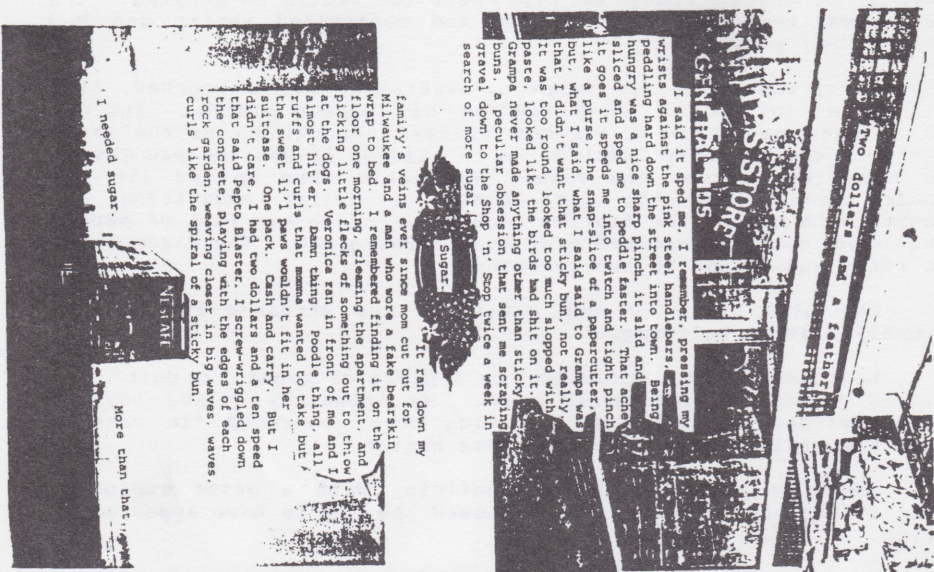 Two dollars and a feather.
STORE
I said it sped me. I remember, pressing my
wrists against the pink steel handlebars,
peddling hard down the street into town. Being
hungry was a nice sharp pinch, it slid and
sliced and sped me to peddle faster. That ache,
it goes it speeds me into twitch and tight pinch
like a purse, the snap-slice of a papercutter,
but, what I said, what I said said to Grampa was
that I didn't want that sticky bun, not really.
It was too round, looked too much slopped with
paste, looked like the birds had shit on it.
Grampa never made anything other than sticky
buns, a peculiar obsession that sent me scraping
gravel down to the Shop 'n' Stop twice a week in
search of more sugar.
Sugar.
It ran down my
family's veins ever since mom cut out for
Milwaukee and a man who wore a fake bearskin
wrap to bed. I remembered finding it on the
floor one morning, cleaning the apartment, and
picking little flecks of something out to throw
at the dogs. Veronica ran in front of me and I
almost hit'er. Damn thing. Poodle thing, all
ruffs and curls that momma wanted to take but
the sweet li'l paws wouldn't fit in her
suitcase. One pack. Cash and carry. But I
didn't care, I had two dollars and a ten speed
that said Pepto Blaster, I screwwriggled down
the concrete, playing with the edges of each
rock garden, weaving closer in big waves waves
curls like the spiral of a sticky bun.
I needed sugar.
More than that.